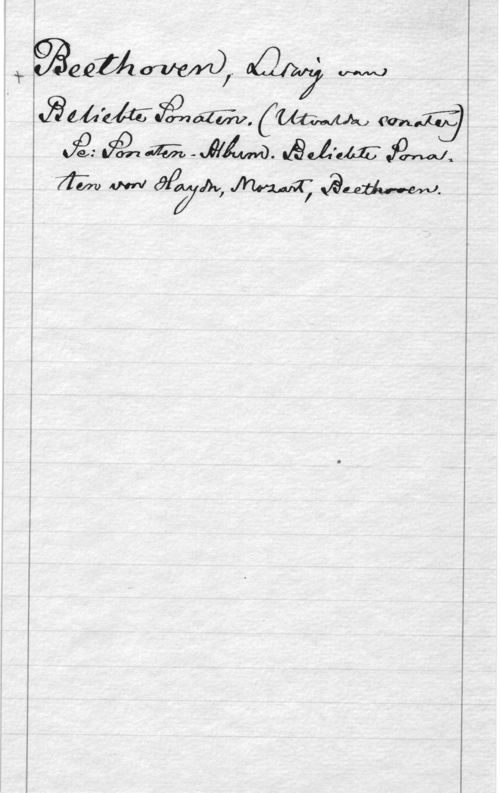 + Beethoven, Ludwig van
Beliebte Sonaten. (Utvalda sonater)
Se: Sonaten-Album. Beliebte Sona-
ten von Haydn, Mozart, Beethoven.